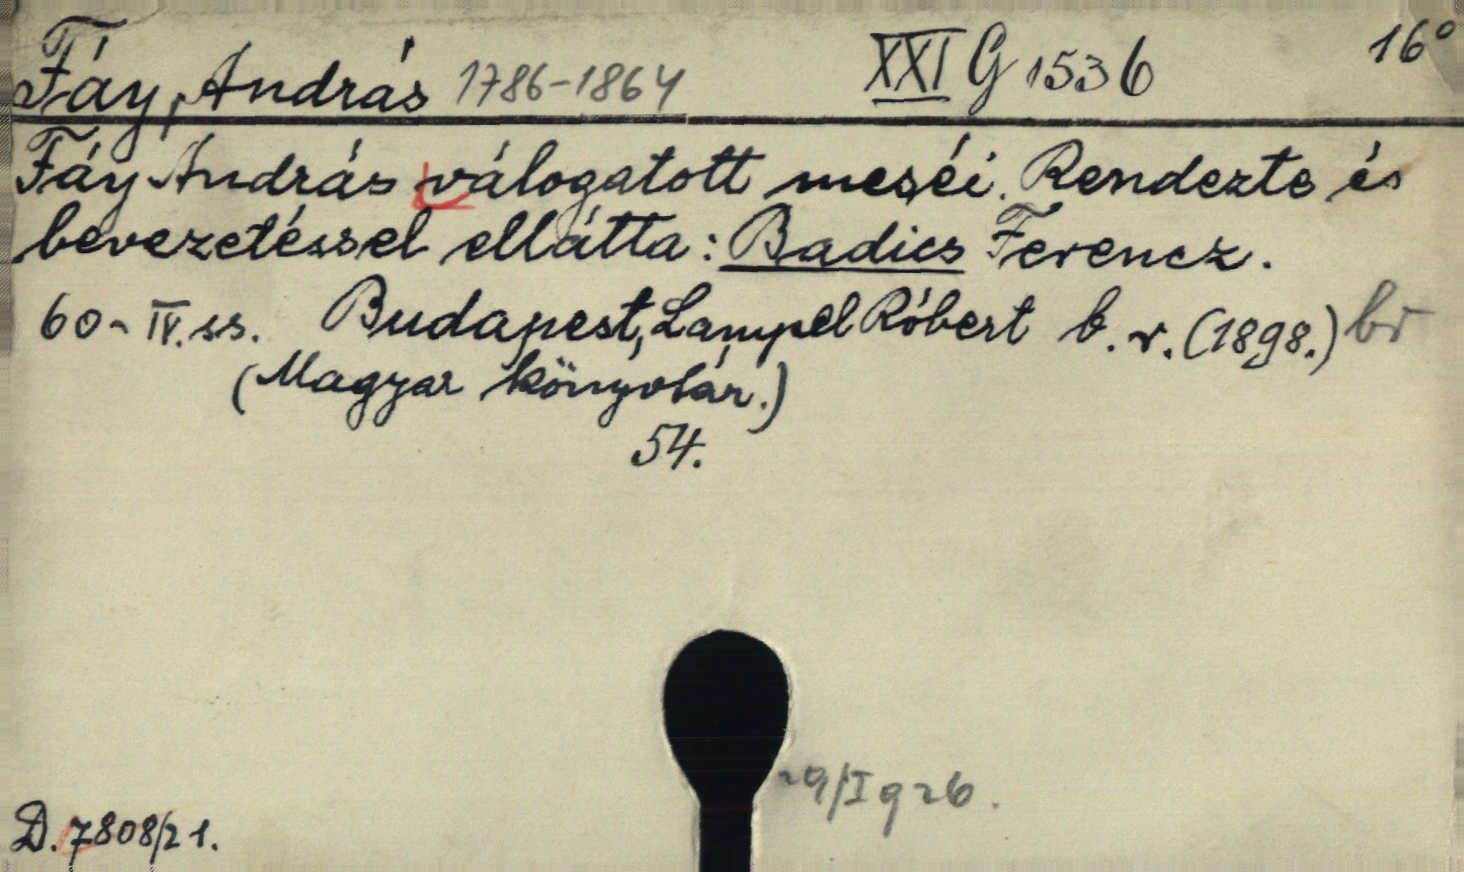 Fáy, András 1786-1864 XXI G 1536 16°
Fáy András válogatott meséi. Rendezte és
bevezetéssel ellátta: Badics Ferencz.
60-IV.ss. Budapest, Lampel Róbert b. r. (1898.) br
(Magyar könyvtár.)
54.
29/I 926.
D. 7808/21.